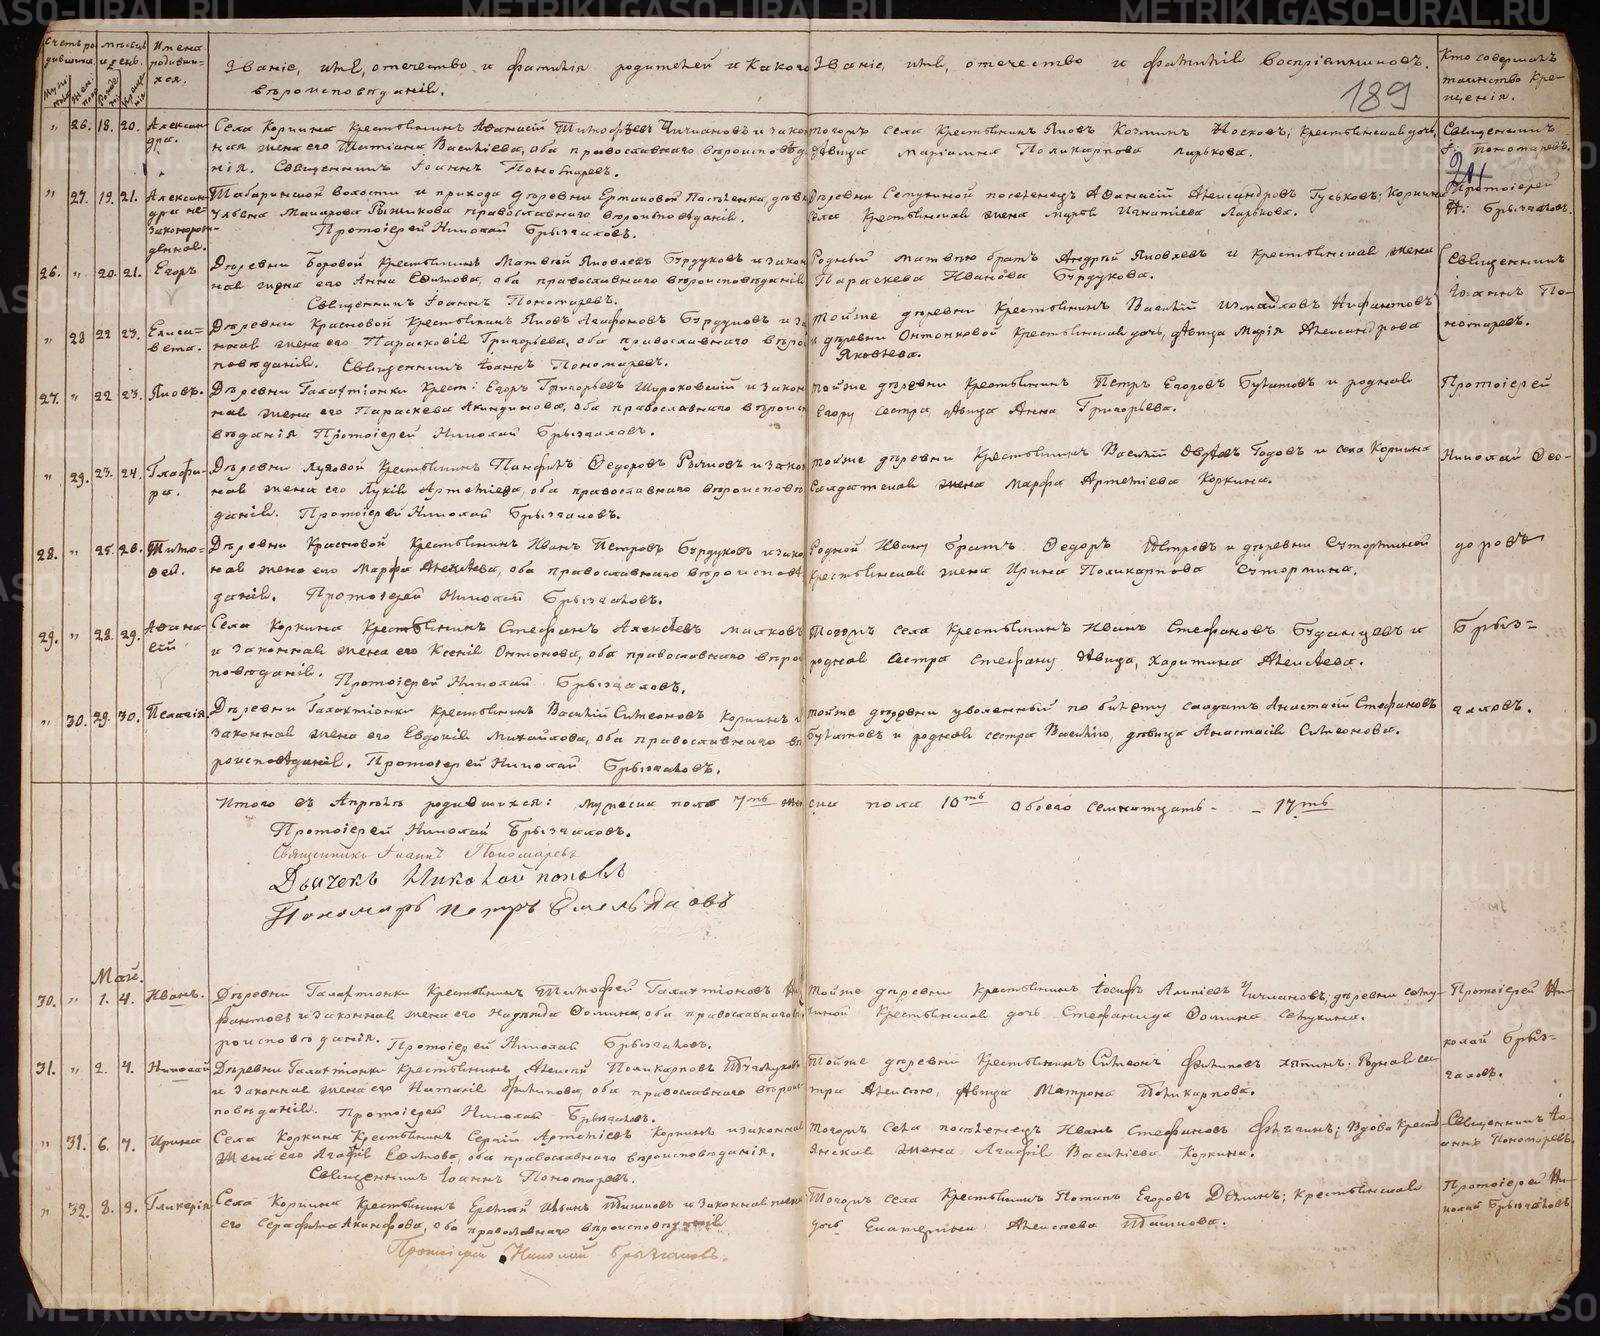 Счетъ родившихся.
Мужеска
Женска
мѣсяцъ и день.
Рожденія
Крещенія
Имена родившихся.
Званіе, имя, отечество и фамилія родителей и какого вѣроисповѣданія.
Званіе, имя, отечество и фамилія воспріемниковъ.
Кто совершалъ таинство крещенія.
189
" 26. 18. 20. Александра.
Села Коркина Крестьянинъ Аѳанасій Тимоѳеевъ Чичкановъ и закон
ная жена его Татіана Васильева, оба православнаго вѣроисповѣда
нія. Священникъ Іоаннъ Пономаревъ.
тогожъ села Крестьянинъ Яковъ Козминъ Носковъ; крестьянская дочь,
дѣвица Маріамна Поликарпова Ларькова.
Священникъ
І: Пономаревъ.
" 27. 19. 21. Александра незаконорожденная.
Табаринской волости и прихода деревни Ермаковой Поселенка, дѣвка
Ульяна Макарова Рыжикова православнаго вѣроисповѣданія.
Протоіерей Николай Брызгаловъ.
Деревни Сетукиной поселенецъ Аѳанасій Александровъ Гуськовъ; Коркина
села Крестьянская жена Марѳа Игнатіева Ларькова.
Протоіерей
Н: Брызгаловъ.
26. " 20. 21. Егоръ
Деревни Боровой крестьянинъ Матвѣй Яковлевъ Бурдуковъ и закон
ная жена его Анна Ефимова, оба православнаго вѣроисповѣданія
Священникъ Іоаннъ Пономаревъ.
Родный Матвѣю братъ Андрей Яковлевъ и крестьянская жена
Параскева Иванова Бурдукова.
Священникъ
" 28 22 23. Елисавета.
Деревни Красновой Крестьянинъ Яковъ Агафоновъ Бурдуковъ и за
конная жена его Парасковія Григорьева, оба православнаго вѣро
повѣданія. Священникъ Іоаннъ Пономаревъ.
тойже деревни Крестьянинъ Василій Измайловъ Нифантовъ
и деревни Онтонковой Крестьянская дочь, дѣвица Марія Александрова
Яковлева.
Іоаннъ По-
номаревъ.
27. " 22 23. Яковъ.
Деревни Галахтіонки Крест: Егоръ Григорьевъ Широковскій и закон
ная жена его Параскева Акиндинова, оба православнаго вѣроис
вѣданія Протоіерей Николай Брызгаловъ.
тойже деревни Крестьянинъ Петръ Егоровъ Булатовъ и родная
Егору сестра, дѣвица Анна Григорьева.
Протоіерей
" 29. 23. 24. Глафира.
Деревни Луковой Крестьянинъ Панфилъ Ѳедоровъ Рычковъ и закон
ная жена его Лукія Артеміева, оба православнаго вѣроисповѣ
данія. Протоіерей Николай Брызгаловъ.
тойже деревни Крестьянинъ Василій Годовъ и села Коркина
Солдатская жена Марфа Артеміева Коркина.
Николай Ѳео-
28. " 25. 26. Тимоѳей.
Деревни Красновой Крестьянинъ Иванъ Петровъ Бурдуковъ и зако
ная жена его Марфа Алексѣева, оба православнаго вѣроисповѣ
данія. Протоіерей Николай Брызгаловъ.
Родной Ивану братъ Ѳедоръ Петровъ и деревни Суторминой
крестьянская жена Ирина Поликарпова Сутормина.
доровъ
29. " 28. 29. Аѳанасій
Села Коркина Крестьянинъ Стефанъ Алексѣевъ Малковъ
и законная жена его Ксенія Онтонова, оба православнаго вѣрои
повѣданія. Протоіерей Николай Брызгаловъ.
Тогожъ села Крестьянинъ Иванъ Стефановъ Буданцевъ и
родная сестра Стефану дѣвица, Харитина Алексѣева.
Брыз-
" 30. 29. 30. Пелагія.
Деревни Галахтіонки Крестьянинъ Василій Симеоновъ Коркинъ и
законная жена его Евдокія Михайлова, оба православнаго вѣ
роисповѣданія. Протоіерей Николай Брызгаловъ.
тойже деревни уволенный по билету солдатъ Анастасій Стефановъ
Булатовъ и родная сестра Василію, дѣвица Анастасія Симеонова.
галовъ.
Итого въ Апрѣлѣ родившихся: мужеска пола 7мь женска пола 10ть Обоего семнатцать - - 17ть
Протоіерей Николай Брызгаловъ.
Священникъ Іоаннъ Пономаревъ
Дьячекъ Николай поповъ
Пономарь петръ Емельяновъ
Май.
30. " 1. 4. Иванъ.
Деревни Галахтіонки Крестьянинъ Тимофей Галахтіоновъ Ни
фантовъ и законная жена его Надежда Ѳомина, оба православнаго вѣ
роисповѣданія. Протоіерей Николай Брызгаловъ.
Тойже деревни Крестьянинъ Іосифъ Алипіевъ Чичкановъ, деревни Сету-
киной Крестьянская дочь Стефанида Ѳомина Сетукина.
Протоіерей Ни-
колай Брыз-
галовъ.
31. " 2. 4. Николай
Деревни Галахтіонки Крестьянинъ Алексѣй Поликарповъ
и законная жена его Наталія Филипова, оба православнаго вѣрои
повѣданія. Протоіерей Николай Брызгаловъ.
Тойже деревни Крестьянинъ Симеонъ Филиповъ Хаткинъ; Родная сес-
тра Алексѣю, дѣвица Матрона Поликарпова.
" 31. 6. 7. Ирина
Села Коркина Крестьянинъ Сергій Артеміевъ Коркинъ и законная
жена его Агафія Ефимова, оба православнаго вѣроисповѣданія.
Священникъ Іоаннъ Пономаревъ.
Тогожъ села поселенецъ Иванъ Стефановъ; Вдова Крестьянская жена Агафія Васильева Коркина.
Священникъ Іо-
аннъ Пономаревъ.
" 32. 8. 9. Гликерія
Села Коркина Крестьянинъ Еремѣй Ильинъ и законная жена
его Серафима Акинфова, оба православнаго вѣроисповѣданія.
Протоіерей Николай Брызгаловъ.
Тогожъ села Крестьянинъ Потапъ Егоровъ Деминъ; крестьянская
дочь Екатерина Алексѣева
Протоіерей Ни-
колай Брызгаловъ
METRIKI.GASO-URAL.RU